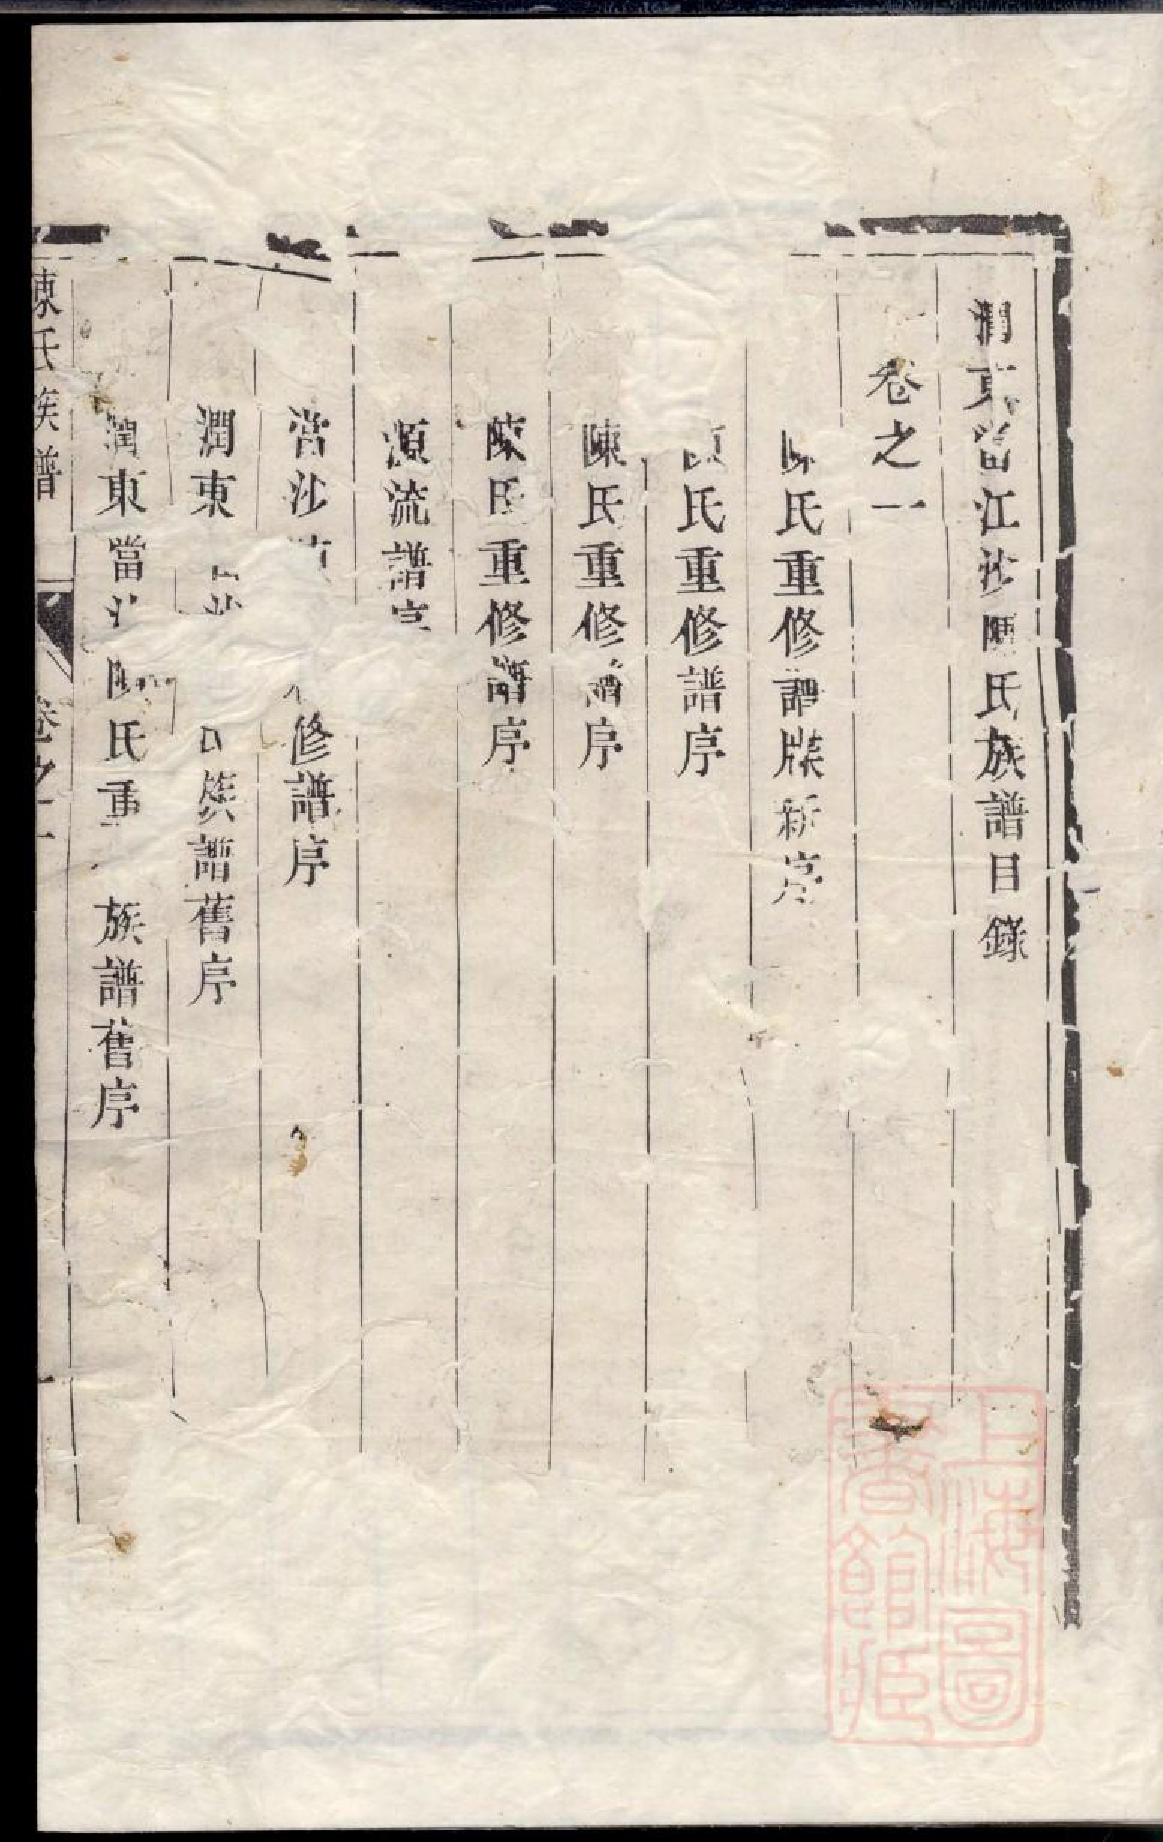 潤東當江沙陳氏族譜目錄
卷之一
陳氏重修譜牒新序
陳氏重修譜序
陳氏重修譜序
陳氏重修譜序
源流譜序
當沙修譜序
潤東沙氏族譜舊序
潤東當沙陳氏重族譜舊序
陳氏族譜
卷之一
上海圖
書館藏